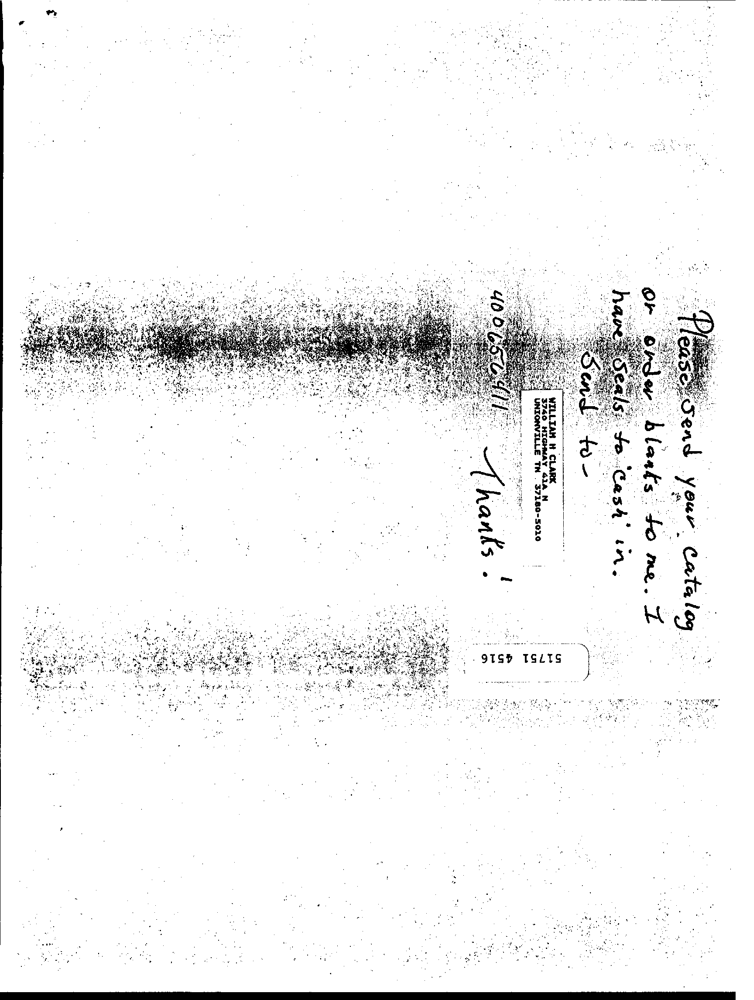 Please send your catalog
or order blanks to me. I
have seals to 'cash' in.
Send to -
WILLIAM H CLARK
3760 HIGHWAY 41A N
UNIONVILLE TN 37180-5020
400656911
Thanks!
51751 4516